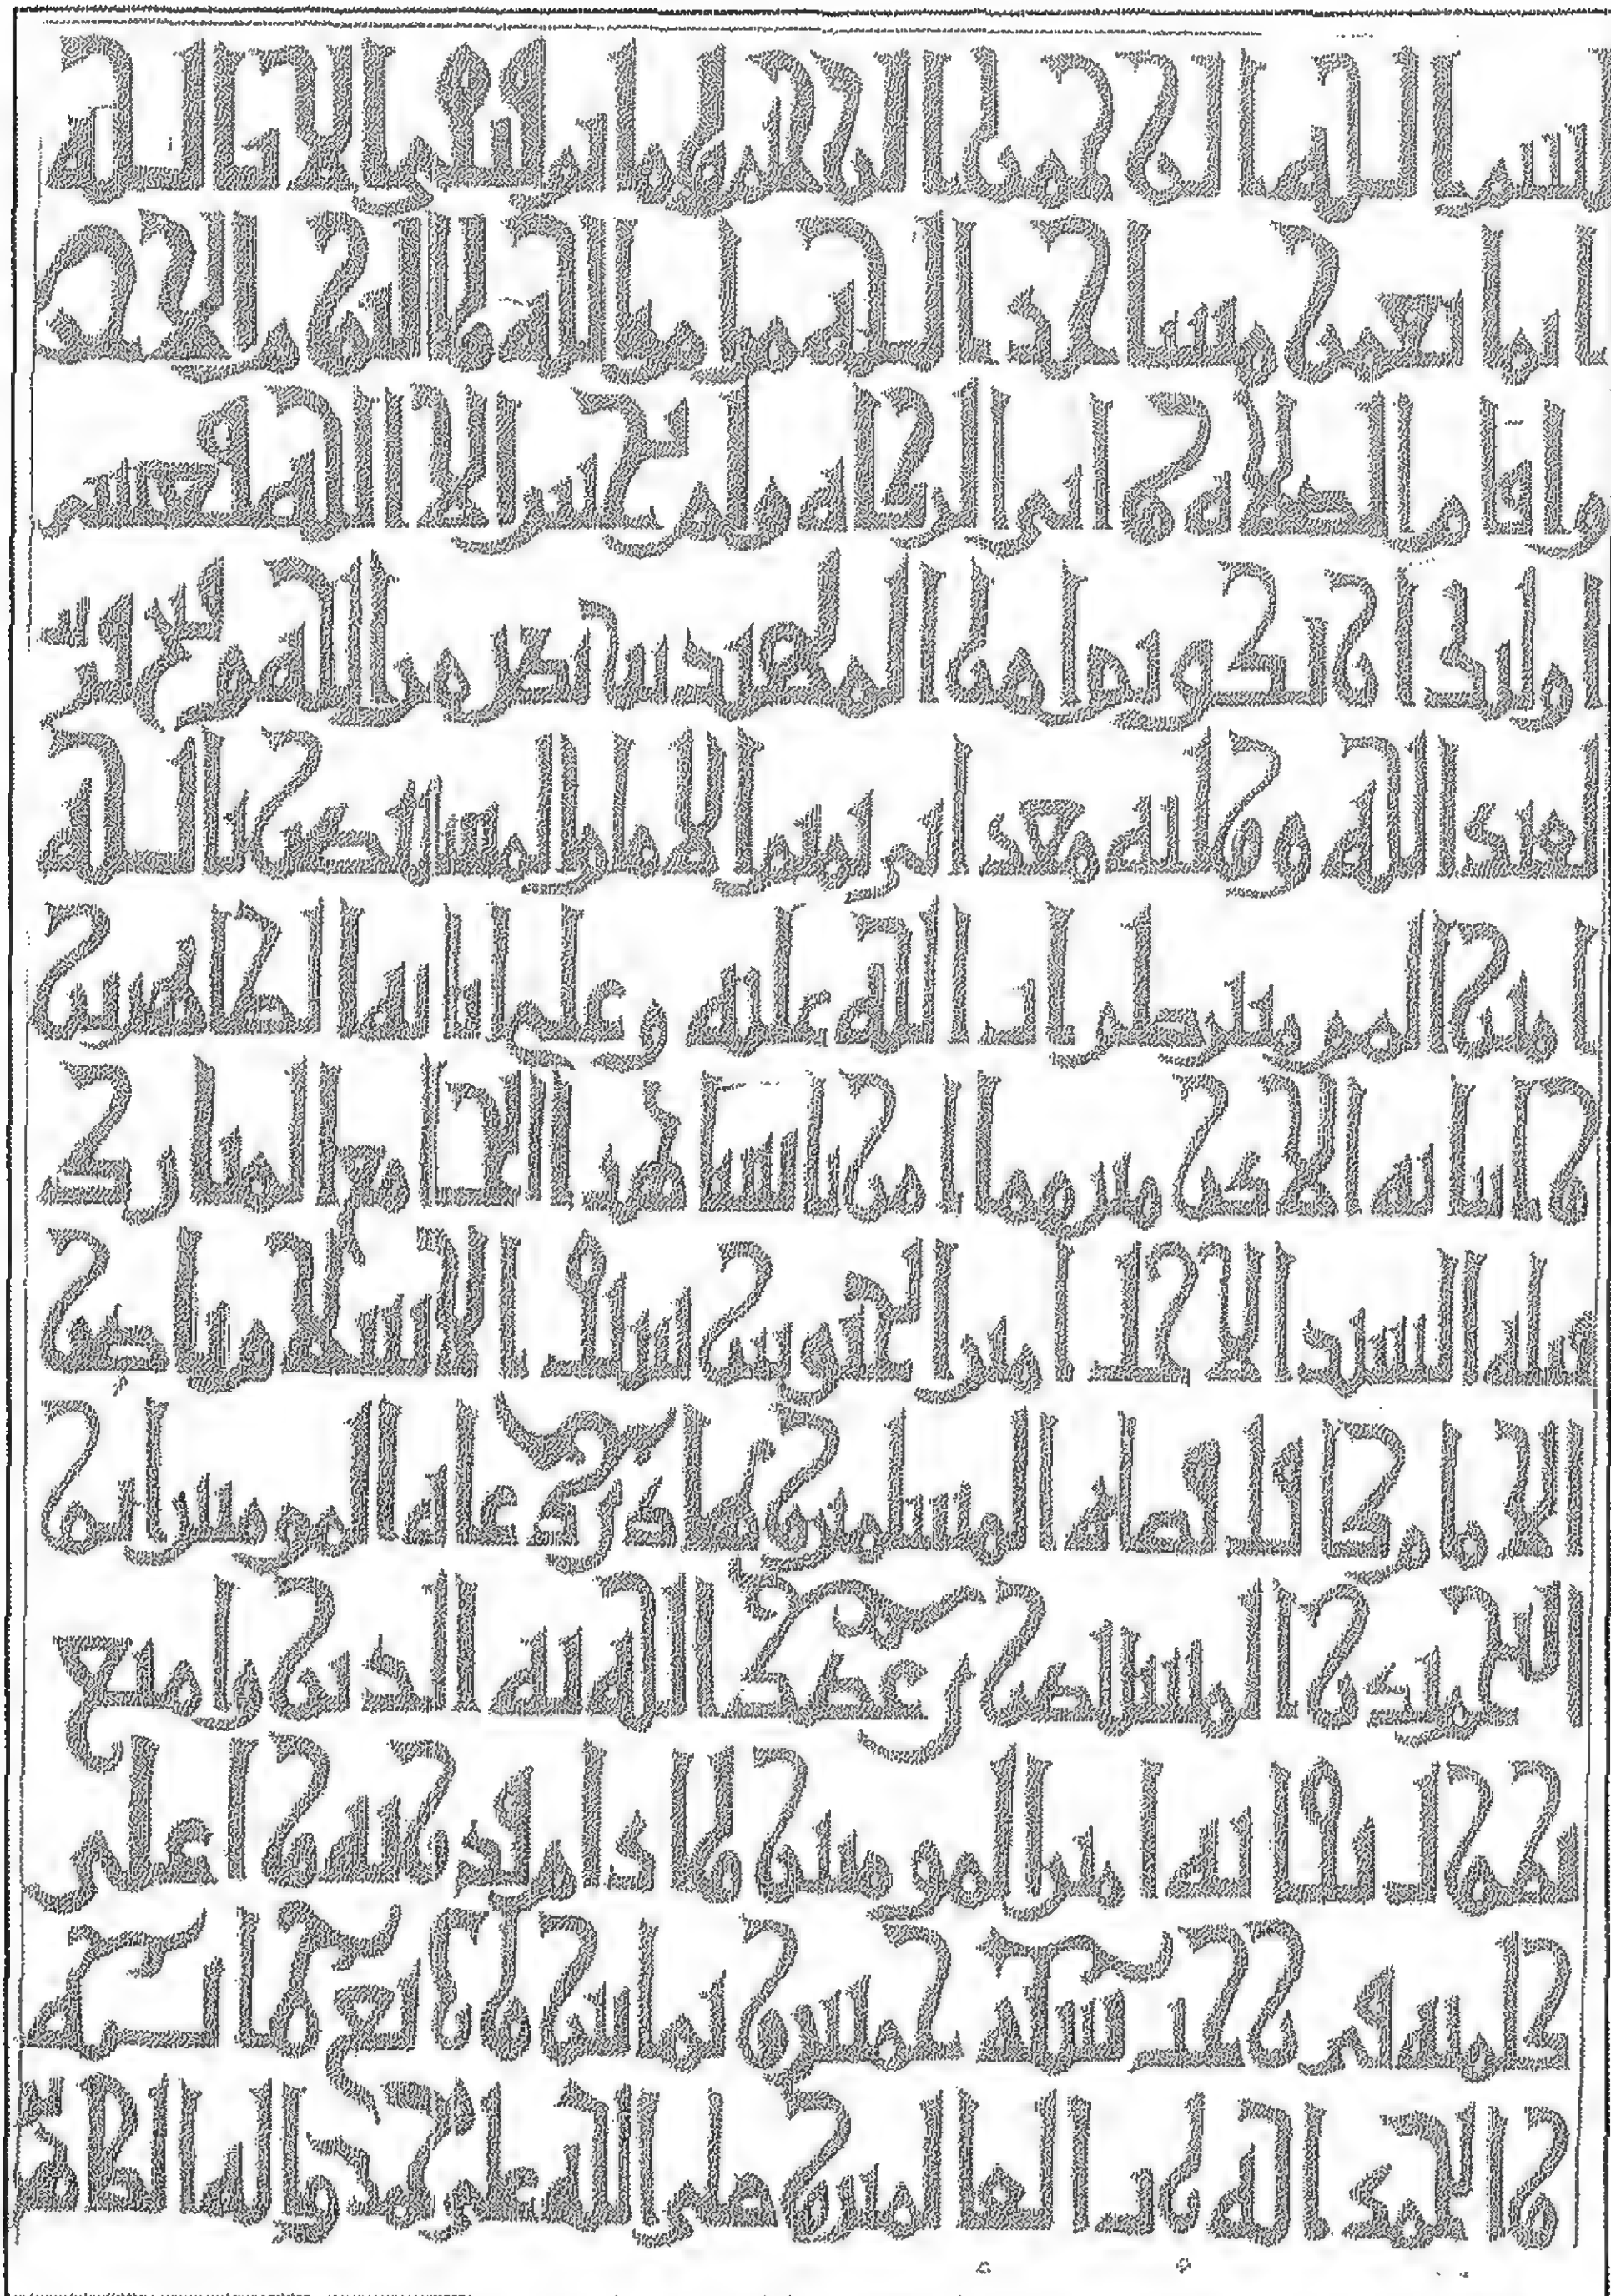 بسم الله الرحمن الرحيم وما توفيقى الا بالله
انما يعمر مساجد الله من امن بالله واليوم الاخر
واقام الصلوة واتى الزكوة ولم يخش الا الله فعسى
اولئك ان يكونوا من المهتدين نصر من الله وفتح قريب
لعبد الله ووليه معد ابى تميم الامام المستنصر بالله
امير المومنين صلوات الله عليه وعلى ابائه الطاهرين
وابنائه الاكرمين مما امر بانشاء هذا الجامع المبارك
فتاه السيد الاجل امير الجيوش سيف الاسلام ناصر
الامام كافل قضاة المسلمين وهادى دعاة المومنين ابو
النجم بدر المستنصرى عضد الله به الدين وامتع
بطول بقائه امير المومنين وادام قدرته واعلى
كلمته فى رجب سنة خمس وثمانين واربع مائة
والحمد لله رب العالمين وصلى الله على محمد واله الطاهرين